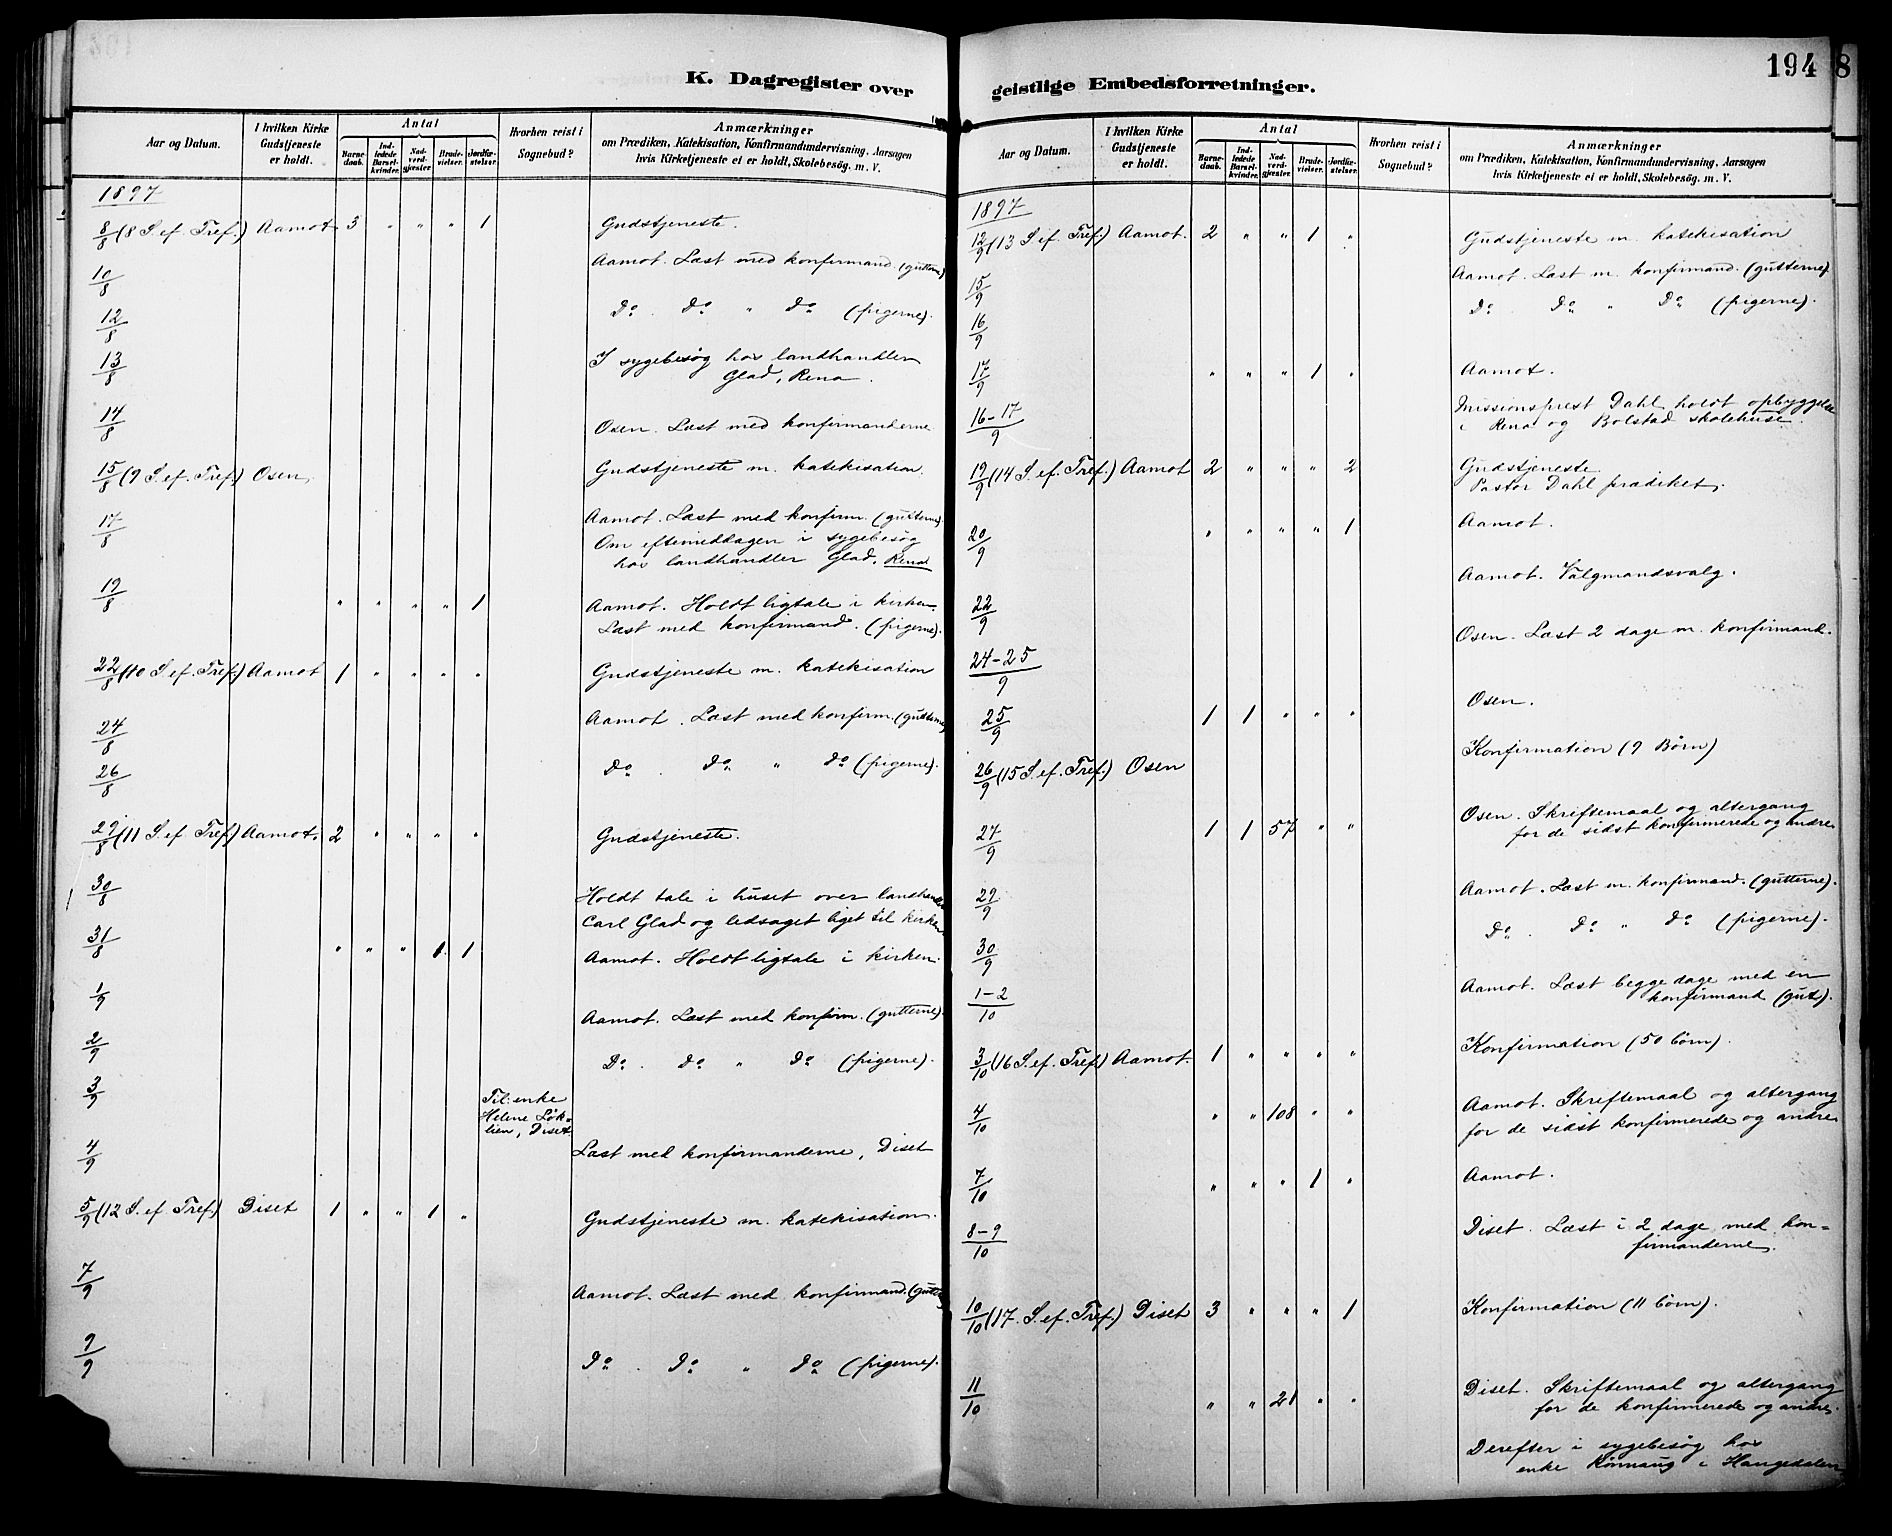 K. Dagregister over
Aar og Datum. I hvilken Kirke Gudstjeneste er holdt. Antal Barnedaab. Indledede Barselkvinder. Nadverdgjæster. Brudevielser. Jordfæstelser. Hvorhen reist i Sognebud? Anmærkninger om Prædiken, Katekisation, Konfirmandundervisning, Aarsagen hvis Kirketjeneste ei er holdt, Skolebesøg. m. V.
1897
8/8 (8 S. ef. Tref.) Aamot 3 " " " 1 Gudstjeneste.
10/8 Aamot. Læst med konfirmand. (gutterne)
12/8 Do. Do " Do (pigerne).
13/8 I sygebesøg hos landhandler
Glad, Rena.
14/8 Osen. Læst med konfirmanderne
15/8 (9 S. ef. Tref.) Osen. Gudstjeneste m. katekisation.
17/8 Aamot. Læst med konfirm. (gutterne).
Om eftermiddagen i sygebesøg
hos landhandler Glad, Rena
19/8 " " " " 1 Aamot. Holdt ligtale i kirken.
Læst med konfirmand. (pigerne).
22/8 (10 S. ef. Tref.) Aamot 1 " " " " Gudstjeneste m. katekisation
24/8 Aamot. Læst med konfirm. (gutterne)
26/8 Do. Do " Do (pigerne).
29/8 (11 S. ef. Tref.) Aamot. 2 " " " " Gudstjeneste.
30/8 Holdt tale i huset over landhandler
Carl Glad og ledsaget liget til kirken
31/8 " " " 1. 1 Aamot. Holdt ligtale i kirken.
1/9 Aamot. Læst med konfirm. (gutterne).
2/9 Do. Do " Do (pigerne).
3/9 Til: enke
Helene Løk-
lien, Diset.
4/9 Læst med konfirmanderne, Diset
5/9 (12 S. ef Tref.) Diset 1 " " 1 " Gudstjeneste m. katekisation.
7/9 Aamot. Læst med konfirmand. (gutterne)
9/9 Do. Do " Do (pigerne).
geistlige Embedsforretninger.
194
8
Aar og Datum. I hvilken Kirke Gudstjeneste er holdt. Antal Barnedaab. Indledede Barselkvinder. Nadverdgjæster. Brudevielser. Jordfæstelser. Hvorhen reist i Sognebud? Anmærkninger om Prædiken, Katekisation, Konfirmandundervisning, Aarsagen hvis Kirketjeneste ei er holdt, Skolebesøg. m. V.
1897
12/9 (13 S. ef. Tref.) Aamot. 2 " " 1 " Gudstjeneste m. katekisation
15/9 Aamot. Læst m. konfirmand. (gutterne).
16/9 Do. Do " Do (pigerne).
17/9 " " " 1 " Aamot.
16-17/9 Missionsprest Dahl holdt opbyggelse
i Rena og Bolstad skolehuse.
19/9 (14 S. ef. Tref.) Aamot 2 " " " 2 Gudstjeneste
Pastor Dahl prædiket.
20/9 " " " " 1 Aamot.
22/9 Aamot. Valgmandsvalg.
24-25/9 Osen. Læst 2 dage m. konfirmand.
25/9 1 1 " " " Osen.
26/9 (15 S. ef. Tref.) Osen Konfirmation (9 Børn)
27/9 1 1 57 " " Osen. Skriftemaal og altergang
for de sidst konfirmerede og andre
29/9 Aamot. Læst m. konfirmand. (gutterne).
30/9 Do. Do " Do (pigerne).
1-2/10 Aamot. Læst begge dage med en
konfirmand (gut).
3/10 (16 S. ef. Tref.) Aamot. 1 " " " " Konfirmation (50 børn).
4/10 " " 108 " " Aamot. Skriftemaal og altergang
for de sidst konfirmerede og andre
7/10 " " " 1 " Aamot.
8-9/10 Diset. Læst i 2 dage med kon-
firmanderne.
10/10 (17. S. ef. Tref.) Diset 3 " " " 1 Konfirmation (11 børn).
11/10 " " 21 " " Diset. Skriftemaal og altergang
for de konfirmerede og andre.
Derefter i sygebesøg hos
enke Rønnaug i Haugedalen